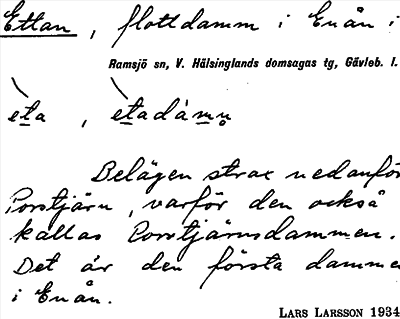 Ettan, flottdamm i Enån i
Ramsjö sn, V. Hälsinglands domsagas tg, Gävleb. l.
eta, etadámn
Belägen strax nedanför
Porstjärn, varför den också
kallas Porstjärnsdammen.
Det är den första damme
i Enån.
LARS LARSSON 1934